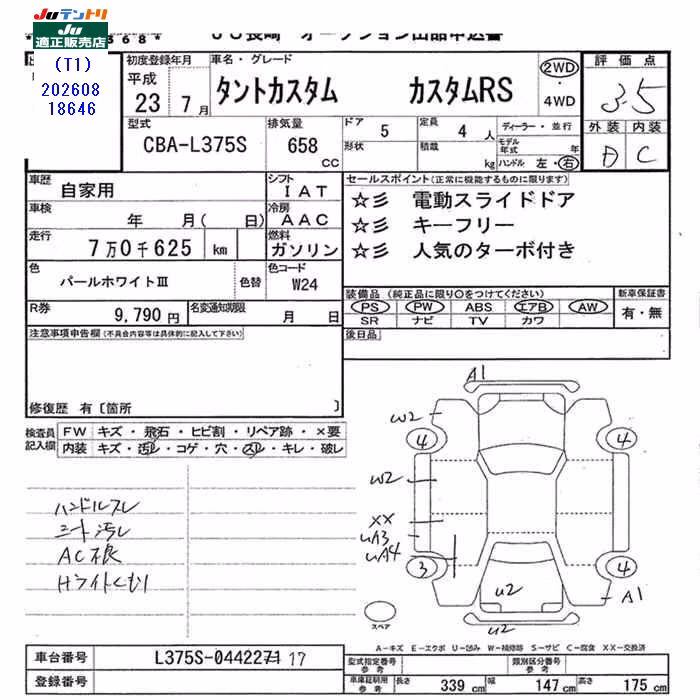 JUテントリ
JU
適正販売店
(T1)
202608
18646
JU長崎 オークション出品申込書
初度登録年月
平成 23 7月
車名・グレード
タントカスタム カスタムRS
2WD
・
4WD
評価点
3.5
外装 内装
D C
型式
CBA-L375S
排気量
658
CC
ドア 5
形状
定員 4 人
積載 kg
ディーラー・並行
モデル年式 年
ハンドル 左・右
車歴
自家用
シフト
IAT
車検
年 月( 日)
冷房
AAC
走行
7万0千625 km
燃料
ガソリン
色
パールホワイトⅢ
色替
色コード
W24
R券
9,790円
名変通知期限
月 日
セールスポイント(正常に機能するものに限ります)
☆彡 電動スライドドア
☆彡 キーフリー
☆彡 人気のターボ付き
装備品 (純正品に限り○をつけてください)
PS PW ABS エアB AW
SR ナビ TV カワ
新車保証書
有・無
後日品
注意事項申告欄(不具合内容等は具体的に記入して下さい)
修復歴 有〔箇所 〕
検査員
記入欄
FW キズ・飛石・ヒビ割・リペア跡・×要
内装 キズ・汚レ・コゲ・穴・スレ・キレ・破レ
ハンドルスレ
シート汚レ
AC根
Hライトくもり
A1
W2
4
4
W2
XX
UA3
UA4
3
4
U2
A1
U2
スペア
A-キズ E-エクボ U-凹み W-補修跡 S-サビ C-腐食 XX-交換済
車台番号
L375S-0442271 17
登録番号
型式指定番号
参考
類別区分番号
参考
車庫証明用
参考
長さ 339 cm 幅 147 cm 高さ 175 cm